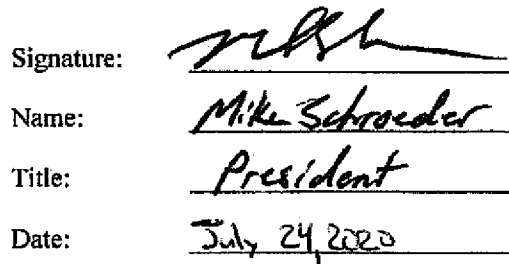 Signature:
Name: Mike Schroeder
Title: President
Date: July 24, 2020